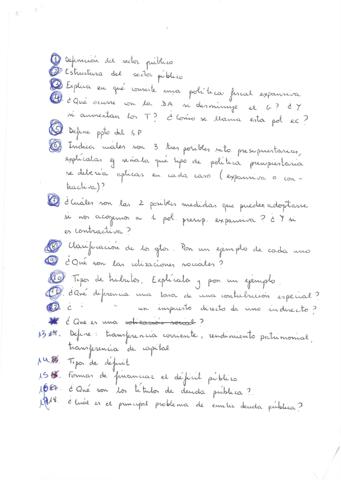 1 Definición del sector público
2 Estructura del sector público
3 Explica en qué consiste una política fiscal expansiva
4 ¿Qué ocurre con la DA si disminuye el G? ¿Y
si aumentan los T? ¿Cómo se llama esta pol ec?
5 Define ppto del SP
6 Indica cuales son 3 las posibles situ. presupuestarias,
explicalas y señala qué tipo de política presupuestaria
se debería aplicar en cada caso (expansiva o con-
tractiva)?
7 ¿Cuáles son las 2 posibles medidas que pueden adoptarse
si nos acogemos a 1 pol presup. expansiva? ¿Y si
es contractiva?
8 Clasificación de los gtos. Pon un ejemplo de cada uno
9 ¿Qué son las cotizaciones sociales?
10 Tipos de tributos. Explícala y pon un ejemplo
11 ¿Qué diferencia una tasa de una contribución especial?
12 ¿ " " un impuesto directo de uno indirecto?
¿Que es una cotización social?
13 Define: transferencia corriente, rendimiento patrimonial,
transferencia de capital
14 Tipos de déficit
15 Formas de financiar el déficit público
16 ¿Qué son los títulos de deuda pública?
¿Cuál es el principal problema de emitir deuda pública?